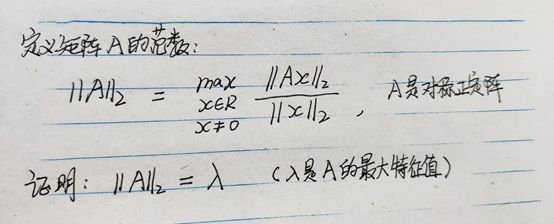 定义矩阵A的范数:
||A||₂ = max x∈R x≠0 ||Ax||₂ / ||x||₂ , A是对称正定阵
证明: ||A||₂ = λ (λ是A的最大特征值)